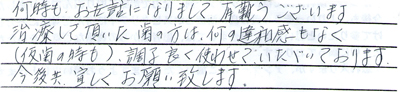 何時も、お世話になりまして、有難うございます
治療して頂いた歯の方は、何の違和感もなく
(仮歯の時も)、調子良く使わせていただいております。
今後共、宜しくお願い致します。